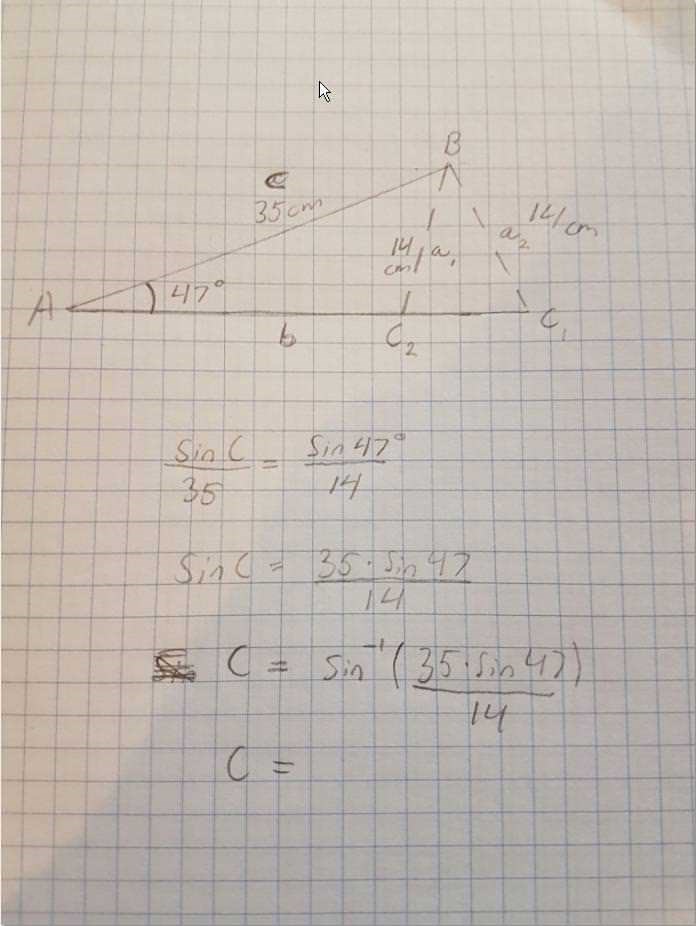 B
c
35cm
14 cm a₁
a₂ 14 cm
A 47°
b C₂ C₁
Sin C / 35 = Sin 47° / 14
Sin C = 35 · Sin 47 / 14
C = Sin⁻¹ ( 35 · Sin 47 / 14 )
C =